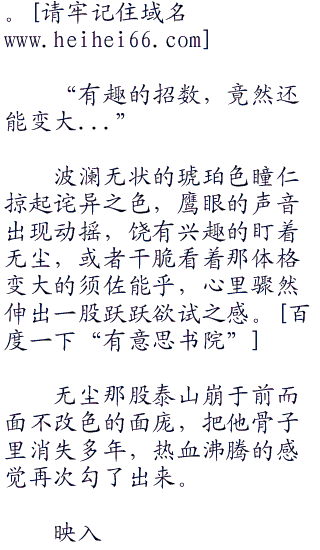 。[请牢记住域名
www.heihei66.com]
“有趣的招数，竟然还
能变大...”
波澜无状的琥珀色瞳仁
掠起诧异之色，鹰眼的声音
出现动摇，饶有兴趣的盯着
无尘，或者干脆看着那体格
变大的须佐能乎，心里骤然
伸出一股跃跃欲试之感。[百
度一下“有意思书院”]
无尘那股泰山崩于前而
面不改色的面庞，把他骨子
里消失多年，热血沸腾的感
觉再次勾了出来。
映入